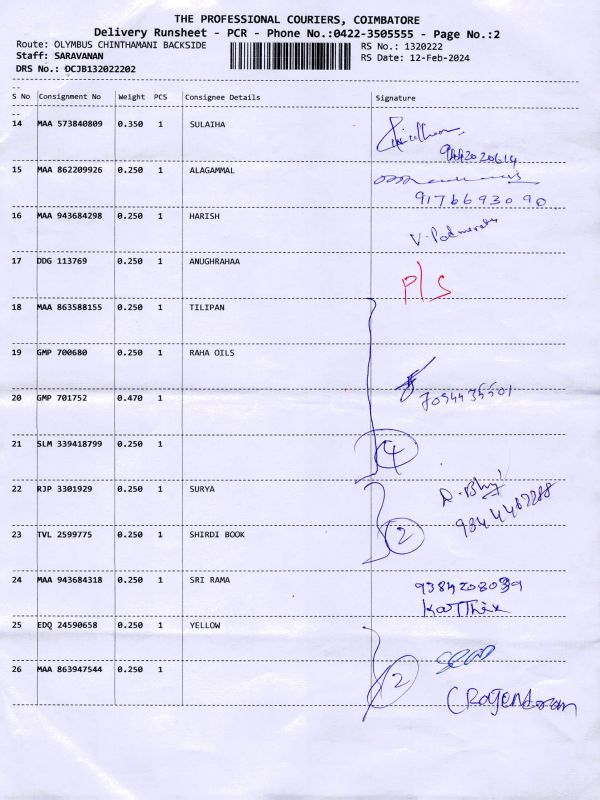 THE PROFESSIONAL COURIERS, COIMBATORE
Delivery Runsheet - PCR - Phone No.:0422-3505555 - Page No.:2
Route: OLYMBUS CHINTHAMANI BACKSIDE RS No.: 1320222
Staff: SARAVANAN RS Date: 12-Feb-2024
DRS No.: OCJB132022202
S No Consignment No Weight PCS Consignee Details Signature
14 MAA 573840809 0.350 1 SULAIHA
15 MAA 862209926 0.250 1 ALAGAMMAL
9176693090
16 MAA 943684298 0.250 1 HARISH
V.
17 DDG 113769 0.250 1 ANUGHRAHAA P/S
18 MAA 863588155 0.250 1 TILIPAN
19 GMP 700680 0.250 1 RAHA OILS
20 GMP 701752 0.470 1
21 SLM 339418799 0.250 1 4
22 RJP 3301929 0.250 1 SURYA
23 TVL 2599775 0.250 1 SHIRDI BOOK 2
24 MAA 943684318 0.250 1 SRI RAMA
Karthik
25 EDQ 24590658 0.250 1 YELLOW
26 MAA 863947544 0.250 1 2